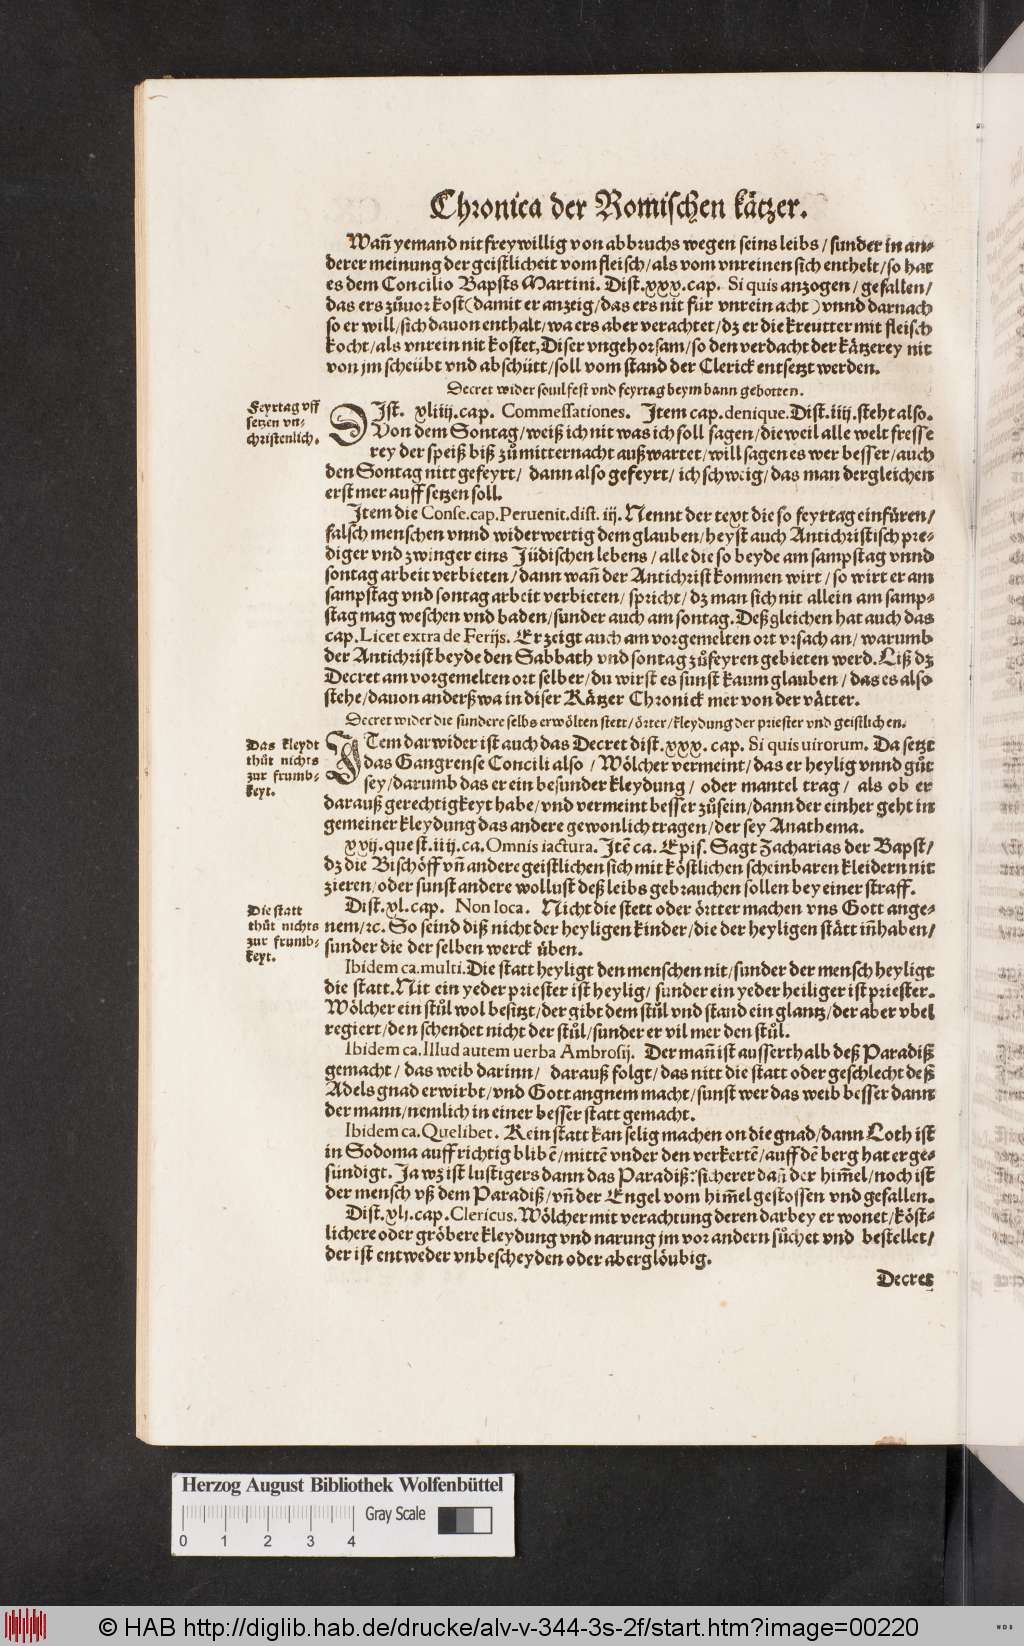 Chronica der Romischen kätzer.
Wañ yemand nit freywillig von abbruchs wegen seins leibs / sunder in an⸗
derer meinung der geistlicheit vom fleisch / als vom vnreinen sich enthelt / so hat
es dem Concilio Bapsts Martini. Dist.xxx.cap. Si quis anzogen / gefallen /
das ers zůuor kost (damit er anzeig / das ers nit für vnrein acht) vnnd darnach
so er will / sich dauon enthalt / wa ers aber verachtet / dz er die kreutter mit fleisch
kocht / als vnrein nit kostet, Diser vngehorsam / so den verdacht der kätzerey nit
von jm scheübt vnd abschütt / soll vom stand der Clerick entsetzt werden.
Decret wider souil fest vnd feyrtag beym bann gebotten.
Feyrtag vff
setzen vn⸗
christenlich.
DIst. xliiij.cap. Commessationes. Item cap.denique.Dist.iiij.steht also.
Von dem Sontag / weiß ich nit was ich soll sagen / dieweil alle welt fresse
rey der speiß biß zů mitternacht außwartet / will sagen es wer besser / auch
den Sontag nitt gefeyrt / dann also gefeyrt / ich schweig / das man dergleichen
erst mer auff setzen soll.
Item die Conse.cap.Peruenit.dist. iij. Nennt der text die so feyrtag einfüren /
falsch menschen vnnd widerwertig dem glauben / heyst auch Antichristisch pre⸗
diger vnd zwinger eins Jüdischen lebens / alle die so beyde am sampstag vnnd
sontag arbeit verbieten / dann wañ der Antichrist kommen wirt / so wirt er am
sampstag vnd sontag arbeit verbieten / spricht / dz man sich nit allein am samp⸗
stag mag weschen vnd baden / sunder auch am sontag. Deßgleichen hat auch das
cap.Licet extra de Ferijs. Er zeigt auch am vorgemelten ort vrsach an / warumb
der Antichrist beyde den Sabbath vnd sontag zůfeyren gebieten werd. Liß dz
Decret am vorgemelten ort selber / du wirst es sunst kaum glauben / das es also
stehe / dauon anderßwa in diser Kätzer Chronick mer von der vätter.
Decret wider die sundere selbs erwölten stett / örter / kleydung der priester vnd geistlichen.
Das kleydt
thůt nichts
zur frumb⸗
keyt.
ITem darwider ist auch das Decret dist.xxx. cap. Si quis uirorum. Da setzt
das Gangrense Concili also / Wölcher vermeint / das er heylig vnnd gůt
sey / darumb das er ein besunder kleydung / oder mantel trag / als ob er
darauß gerechtigkeyt habe / vnd vermeint besser zůsein / dann der einher geht in
gemeiner kleydung das andere gewonlich tragen / der sey Anathema.
xxij.quest.iiij.ca.Omnis iactura. Itē ca. Epis. Sagt Zacharias der Bapst /
dz die Bischöff vñ andere geistlichen sich mit köstlichen scheinbaren kleidern nit
zieren / oder sunst andere wollust deß leibs gebrauchen sollen bey einer straff.
Die statt
thůt nichts
zur frumb⸗
keyt.
Dist.xl.cap. Non loca. Nicht die stett oder örtter machen vns Gott ange⸗
nem / ꝛc. So seind diß nicht der heyligen kinder / die der heyligen stätt iñhaben /
sunder die der selben werck üben.
Ibidem ca.multi.Die statt heyligt den menschen nit / sunder der mensch heyligt
die statt.Nit ein yeder priester ist heylig / sunder ein yeder heiliger ist priester.
Wölcher ein stůl wol besitzt / der gibt dem stůl vnd stand ein glantz / der aber vbel
regiert / den schendet nicht der stůl / sunder er vil mer den stůl.
Ibidem ca.Illud autem uerba Ambrosij. Der mañ ist ausserthalb deß Paradiß
gemacht / das weib darinn / darauß folgt / das nitt die statt oder geschlecht deß
Adels gnad erwirbt / vnd Gott angnem macht / sunst wer das weib besser dann
der mann / nemlich in einer besser statt gemacht.
Ibidem ca.Quelibet. Kein statt kan selig machen on die gnad / dann Loth ist
in Sodoma auffrichtig blibē / mittē vnder den verkertē / auff dē berg hat er ge⸗
sündigt. Ja wz ist lustigers dann das Paradiß? sicherer dañ der him̃el / noch ist
der mensch vß dem Paradiß / vñ der Engel vom him̃el gestossen vnd gefallen.
Dist.xlj.cap.Clericus. Wölcher mit verachtung deren darbey er wonet / köst⸗
lichere oder gröbere kleydung vnd narung jm vor andern sůchet vnd bestellet /
der ist entweder vnbescheyden oder aberglöubig.
Decret
Herzog August Bibliothek Wolfenbüttel
Gray Scale
0 1 2 3 4
© HAB http://diglib.hab.de/drucke/alv-v-344-3s-2f/start.htm?image=00220